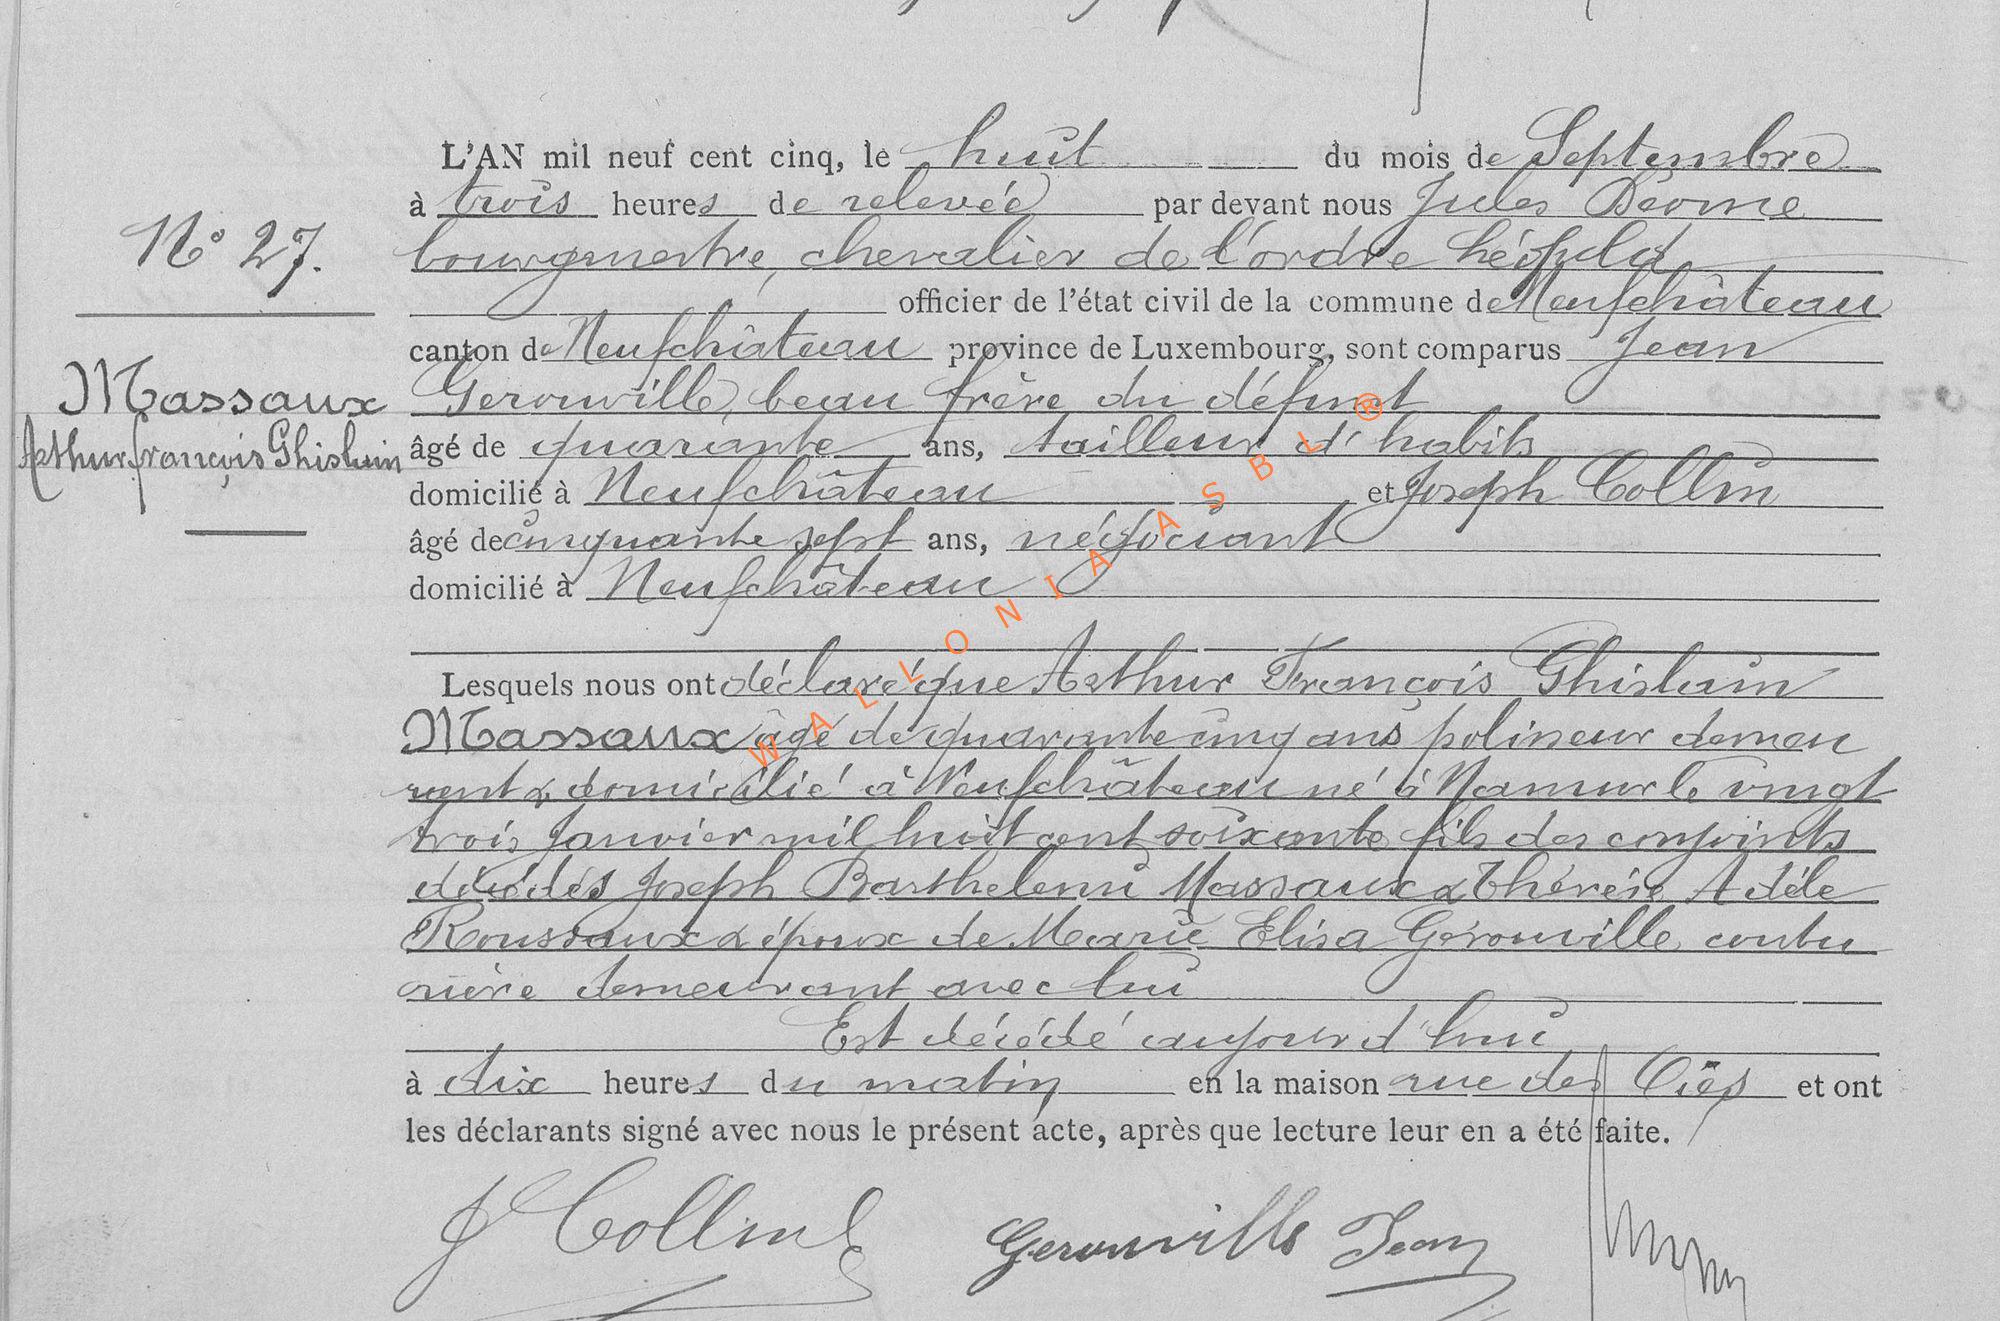 L'AN mil neuf cent cinq, le huit du mois de Septembre
à trois heures de relevée par devant nous Jules
bourgmestre, chevalier de l'ordre Léopold
officier de l'état civil de la commune de Neufchâteau
canton de Neufchâteau province de Luxembourg, sont comparus Jean
Gerouville, beau frère du défunt
âgé de quarante ans, tailleur d'habits
domicilié à Neufchâteau et Joseph Collin
âgé de cinquante sept ans, négociant
domicilié à Neufchâteau
N° 27.
Massaux
Arthur françois Ghislain
Lesquels nous ont déclaré que Arthur François Ghislain
Massaux âgé de quarante cinq ans polisseur demeu
rant & domicilié à Neufchâteau né à Namur le vingt
trois Janvier mil huit cent soixante fils des conjoints
décédés Joseph Barthelemi Massaux & Thérèse Adèle
Roussaux & époux de Marie Elisa Gérouville coutu
rière demeurant avec lui
Est décédé aujourd'hui
à dix heures du matin en la maison rue des et ont
les déclarants signé avec nous le présent acte, après que lecture leur en a été faite.
J Collin Gerouville Jean
WALLONIA ASBL ®